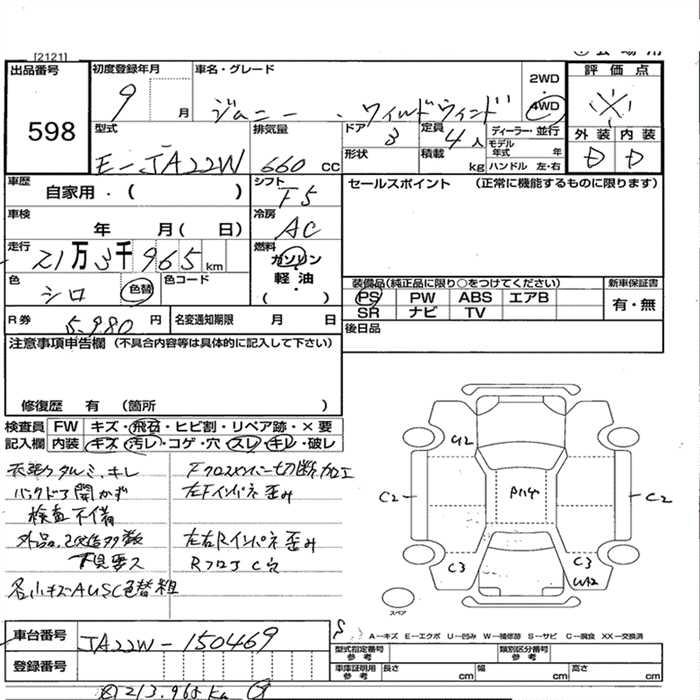 [2121]
出品番号
598
初度登録年月
9 月
車名・グレード
ジムニー . ワイルドウィンド
2WD
・
4WD
評価点
外装 内装
D D
型式
E-JA22W
排気量
660 CC
ドア
3
定員
4 人
形状
積載
kg
ディーラー・並行
モデル
年式 年
ハンドル 左・右
車歴
自家用・( )
シフト
F5
車検
年 月( 日)
冷房
AC
走行
21万3千965 km
燃料
ガソリン
・
軽油
( ・ )
色
シロ
色替
色コード
R券
5,980 円
名変通知期限 月 日
セールスポイント (正常に機能するものに限ります)
装備品(純正品に限り○をつけてください)
PS PW ABS エアB
SR ナビ TV
新車保証書
有・無
後日品
注意事項申告欄 (不具合内容等は具体的に記入して下さい)
修復歴 有 (箇所 )
検査員
記入欄
FW キズ・飛石・ヒビ割・リペア跡・×要
内装 キズ・汚レ・コゲ・穴・スレ・キレ・破レ
天張りタルミ、キレ
バックドア開かず
検査不備
外品、改造多数
下見要ス
各小キズAUSC色替粗
Fクロスメンバー切断加工
左Fインパネ歪み
左右Rインパネ歪み
RフロアC穴
U2
C2
C2
C3
C3
UA2
スペア
A-キズ E-エクボ U-凹み W-補修跡 S-サビ C-腐食 XX-交換済
車台番号
JA22W-150469
登録番号
型式指定番号
参考
類別区分番号
参考
車庫証明用
参考
長さ cm
幅 cm
高さ cm
213,965km